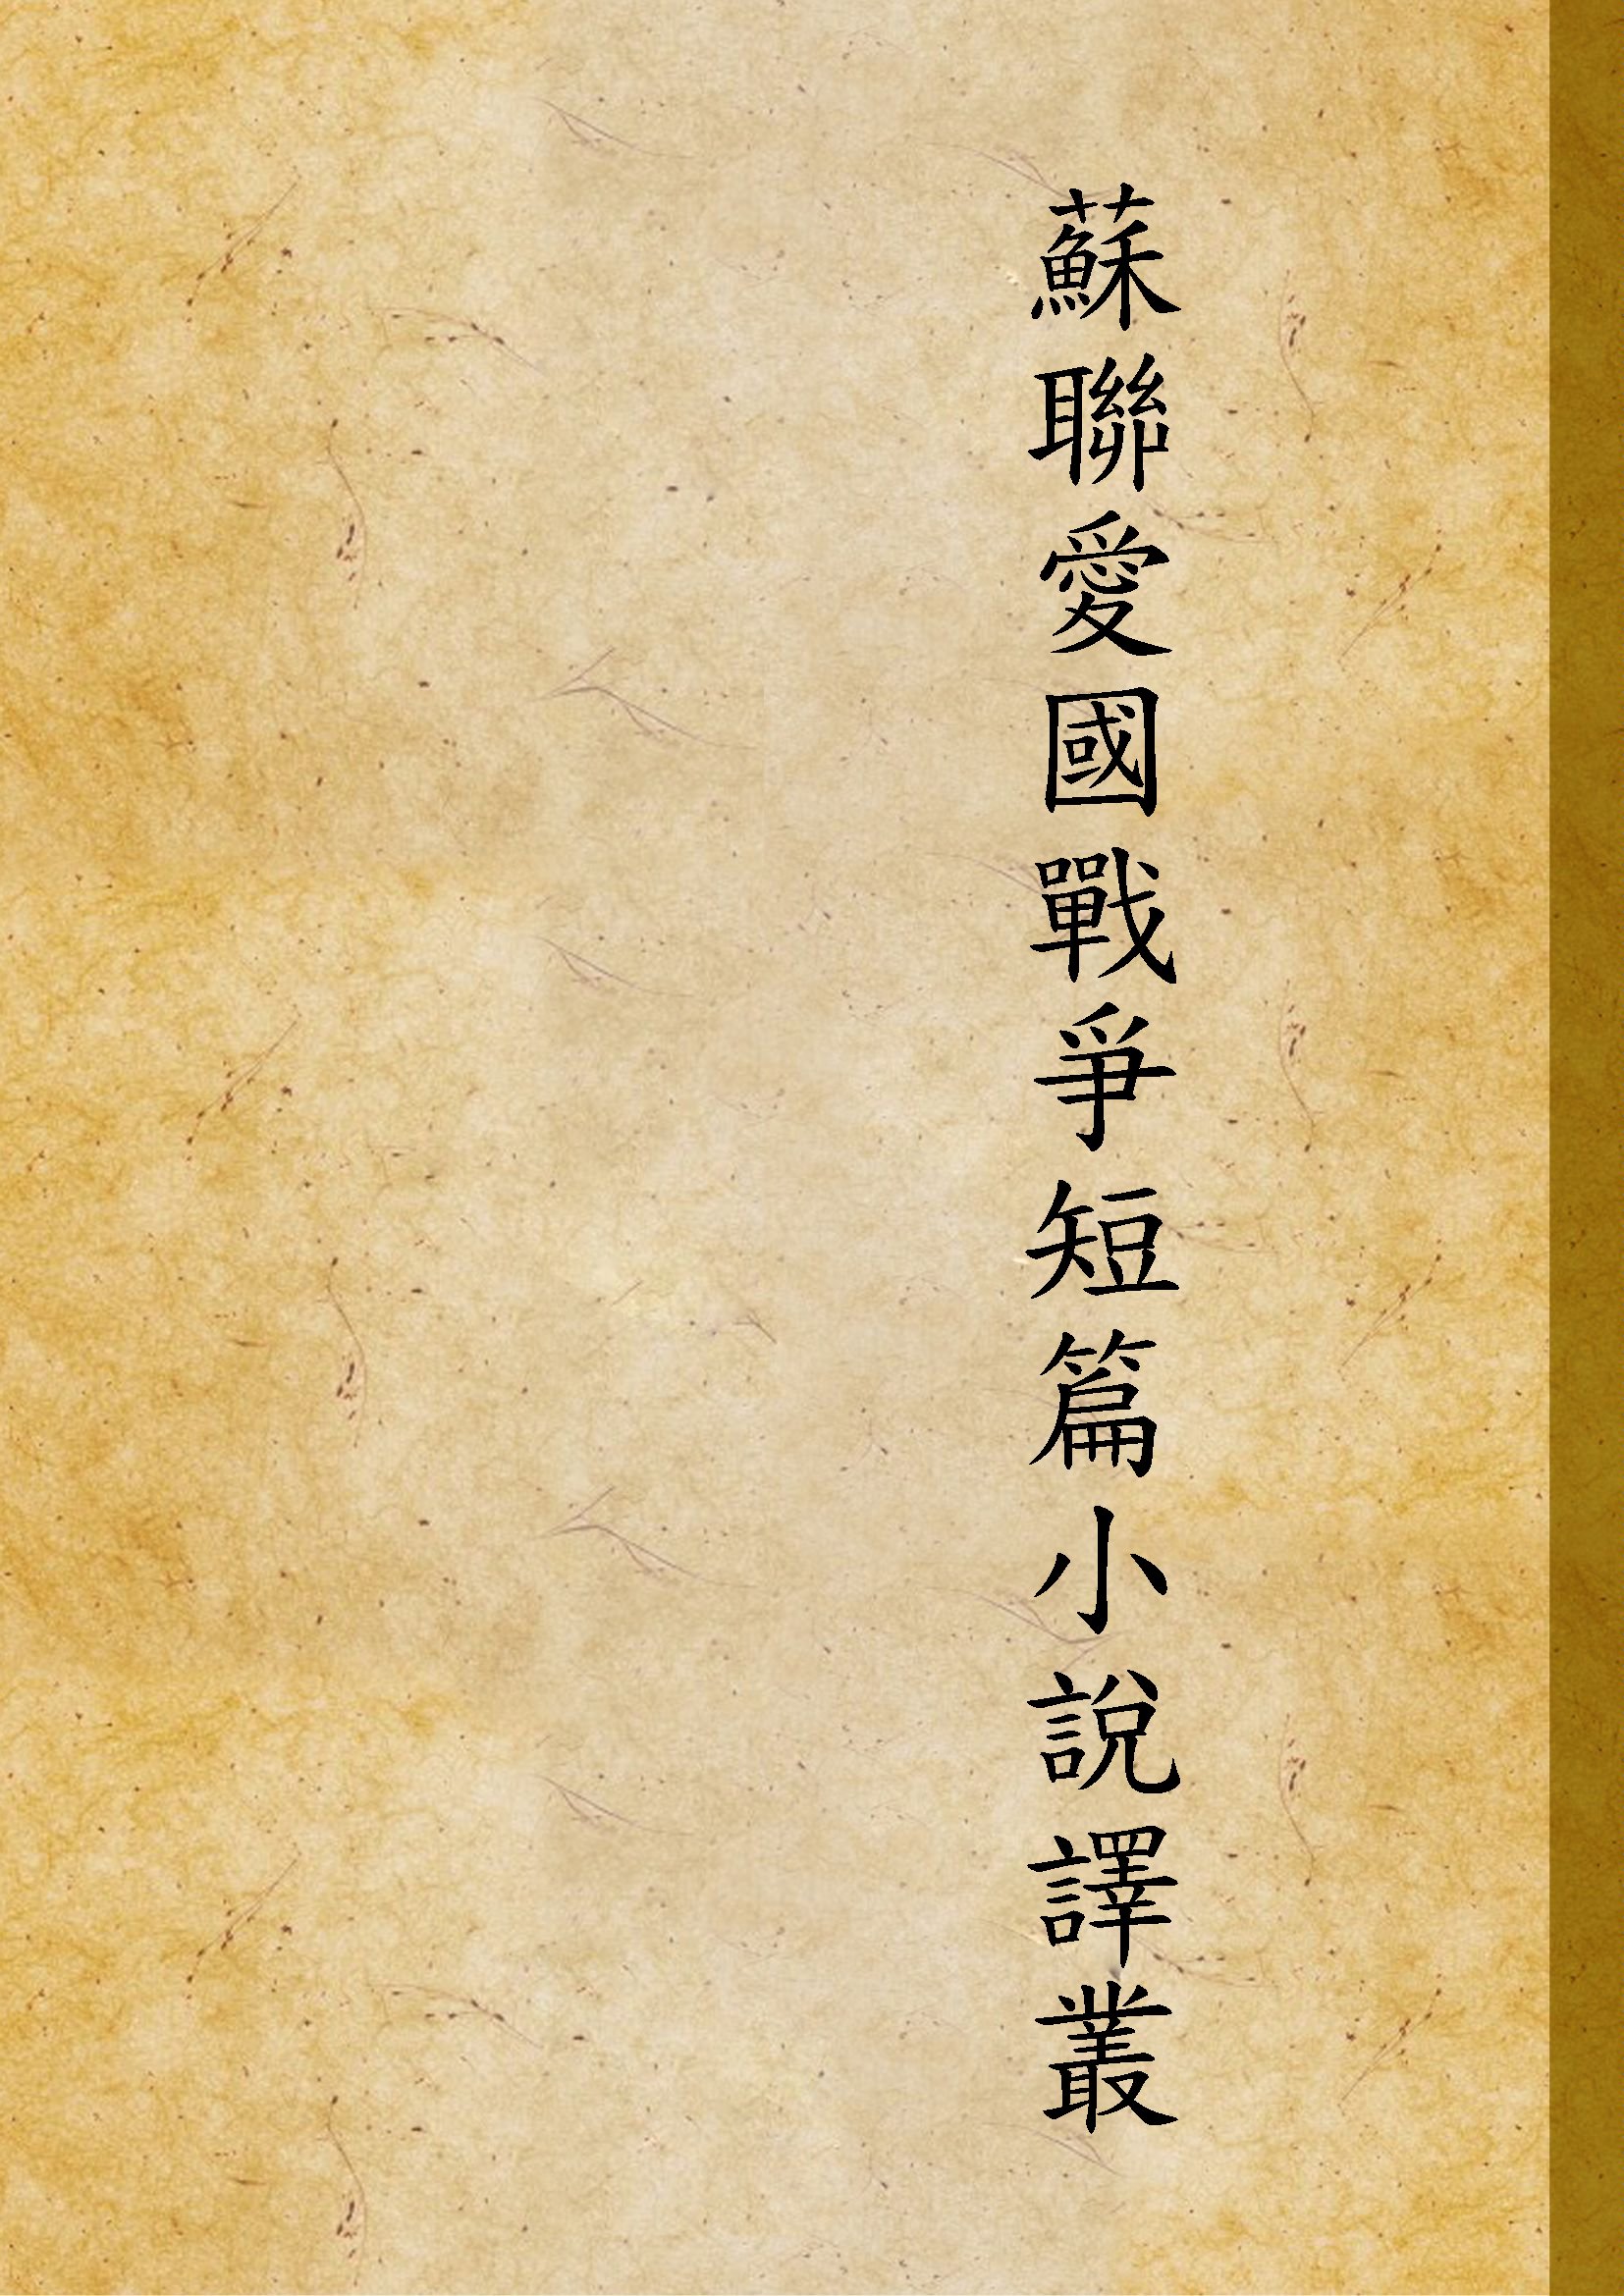 蘇聯愛國戰爭短篇小說譯叢